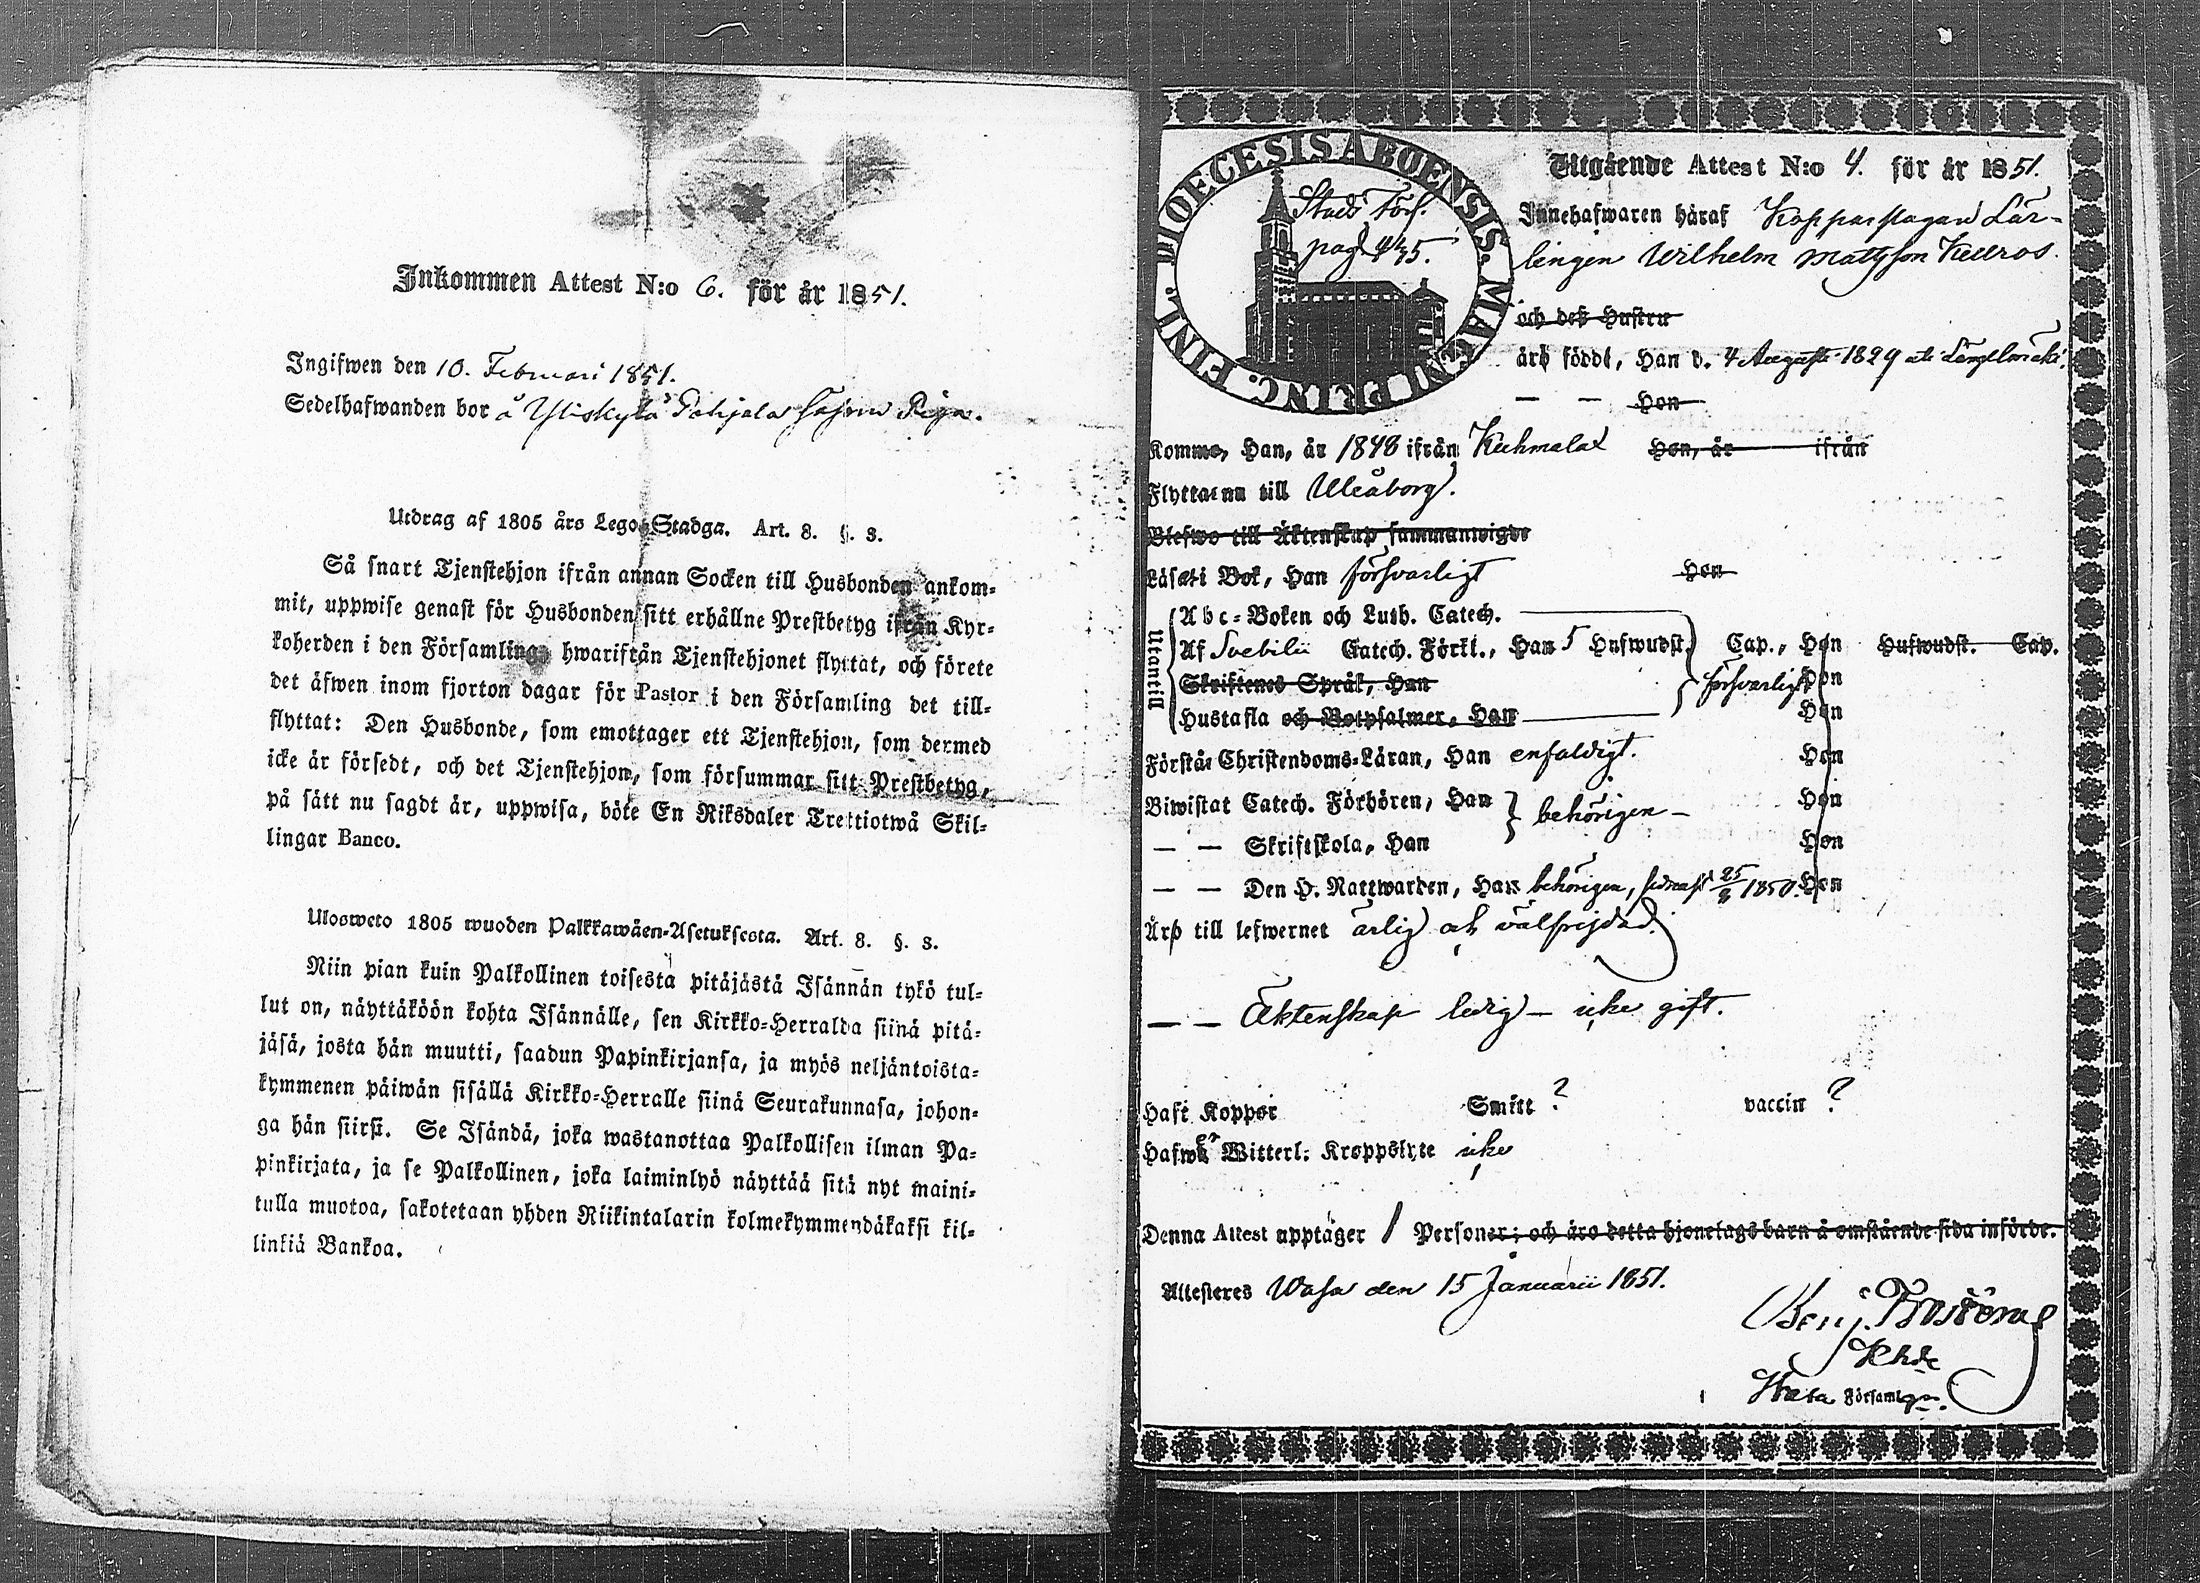 Inkommen Attest N:o 6. för år 1851.
Ingifwen den 10. Februari 1851.
Sedelhafwanden bor å Yliskylä Pohjola
Utdrag af 1805 års Lego-Stadga. Art. 8. §. 3.
Så snart Tjenstehjon ifrån annan Socken till Husbonden ankom-
mit, uppwise genast för Husbonden sitt erhållne Prestbetyg ifrån Kyr-
koherden i den Församling, hwarifrån Tjenstehjonet flyttat, och förete
det äfwen inom fjorton dagar för Pastor i den Församling det till-
flyttat: Den Husbonde, som emottager ett Tjenstehjon, som dermed
icke är försedt, och det Tjenstehjon, som försummar sitt Prestbetyg,
på sätt nu sagdt är, uppwisa, böte En Riksdaler Trettiotwå Skil-
lingar Banco.
Ulosweto 1805 wuoden Palkkawäen-Asetuksesta. Art. 8. §. 3.
Niin pian kuin Palkollinen toisesta pitäjästä Isännän tykö tul-
lut on, näyttäköön kohta Isännälle, sen Kirkko-Herralda siinä pitä-
jäsä, josta hän muutti, saadun Papinkirjansa, ja myös neljäntoista-
kymmenen päiwän sisällä Kirkko-Herralle siinä Seurakunnasa, johon-
ga hän siirsi. Se Isändä, joka wastanottaa Palkollisen ilman Pa-
pinkirjata, ja se Palkollinen, joka laiminlyö näyttää sitä nyt maini-
tulla muotoa, sakotetaan yhden Riikintalarin kolmekymmendäkaksi kil-
linkiä Bankoa.
DIOECESIS ABOENSIS. MAGN. PRINC. FINL.
Stads Förs.
pag 435.
Utgående Attest N:o 4. för år 1851.
Innehafwaren häraf Kopparslagare Lär-
lingen Wilhelm Mattsson Kellros.
och dess Hustru
äro född, Han d. 4 Augusti 1829 uti Längelmäki.
— — Hon
Komme, Han, år 1848 ifrån Kuhmalax Hon, år ifrån
Flyttar nu till Uleåborg.
Blefwo till Äktenskap sammanwigde
Läser i Bok, Han försvarligt Hon
Utantill
Abc-Boken och Luth. Catech.
Af Svebilii Catech. Förkl., Han 5 Hufwudst. Cap., Hon Hufwudst. Cap.
Skriftenes Språk, Han försvarligt Hon
Hustafla och Botpsalmer, Han Hon
Förstår Christendoms-Läran, Han enfaldigt. Hon
Biwistat Catech. Förhören, Han behörigen — Hon
— — Skriftskola, Han Hon
— — Den H. Nattwarden, Han behörigen, sednast 25/8 1850. Hon
Är till lefwernet ärlig och välfrejdad.
— — Äktenskap ledig — icke gift.
Haft Koppor Smitt ? vaccin ?
Hafwer Witterl: Kroppslyte icke
Denna Attest upptager 1 Personer; och äro detta hjonelags barn å omstående sida införde.
Attesteres Wasa den 15 Januarii 1851.
Benj.
Khde
Wasa Församlgn.